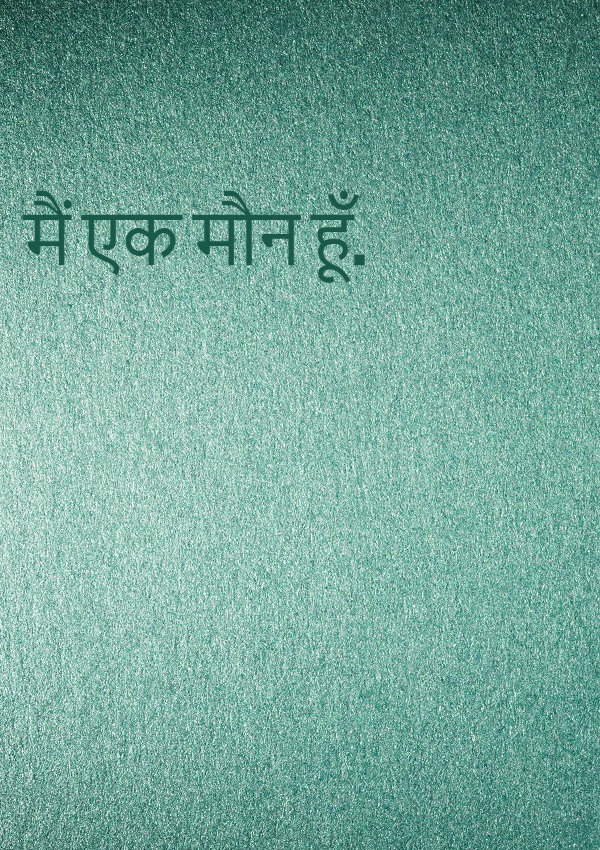 मैं एक मौन हूँ.